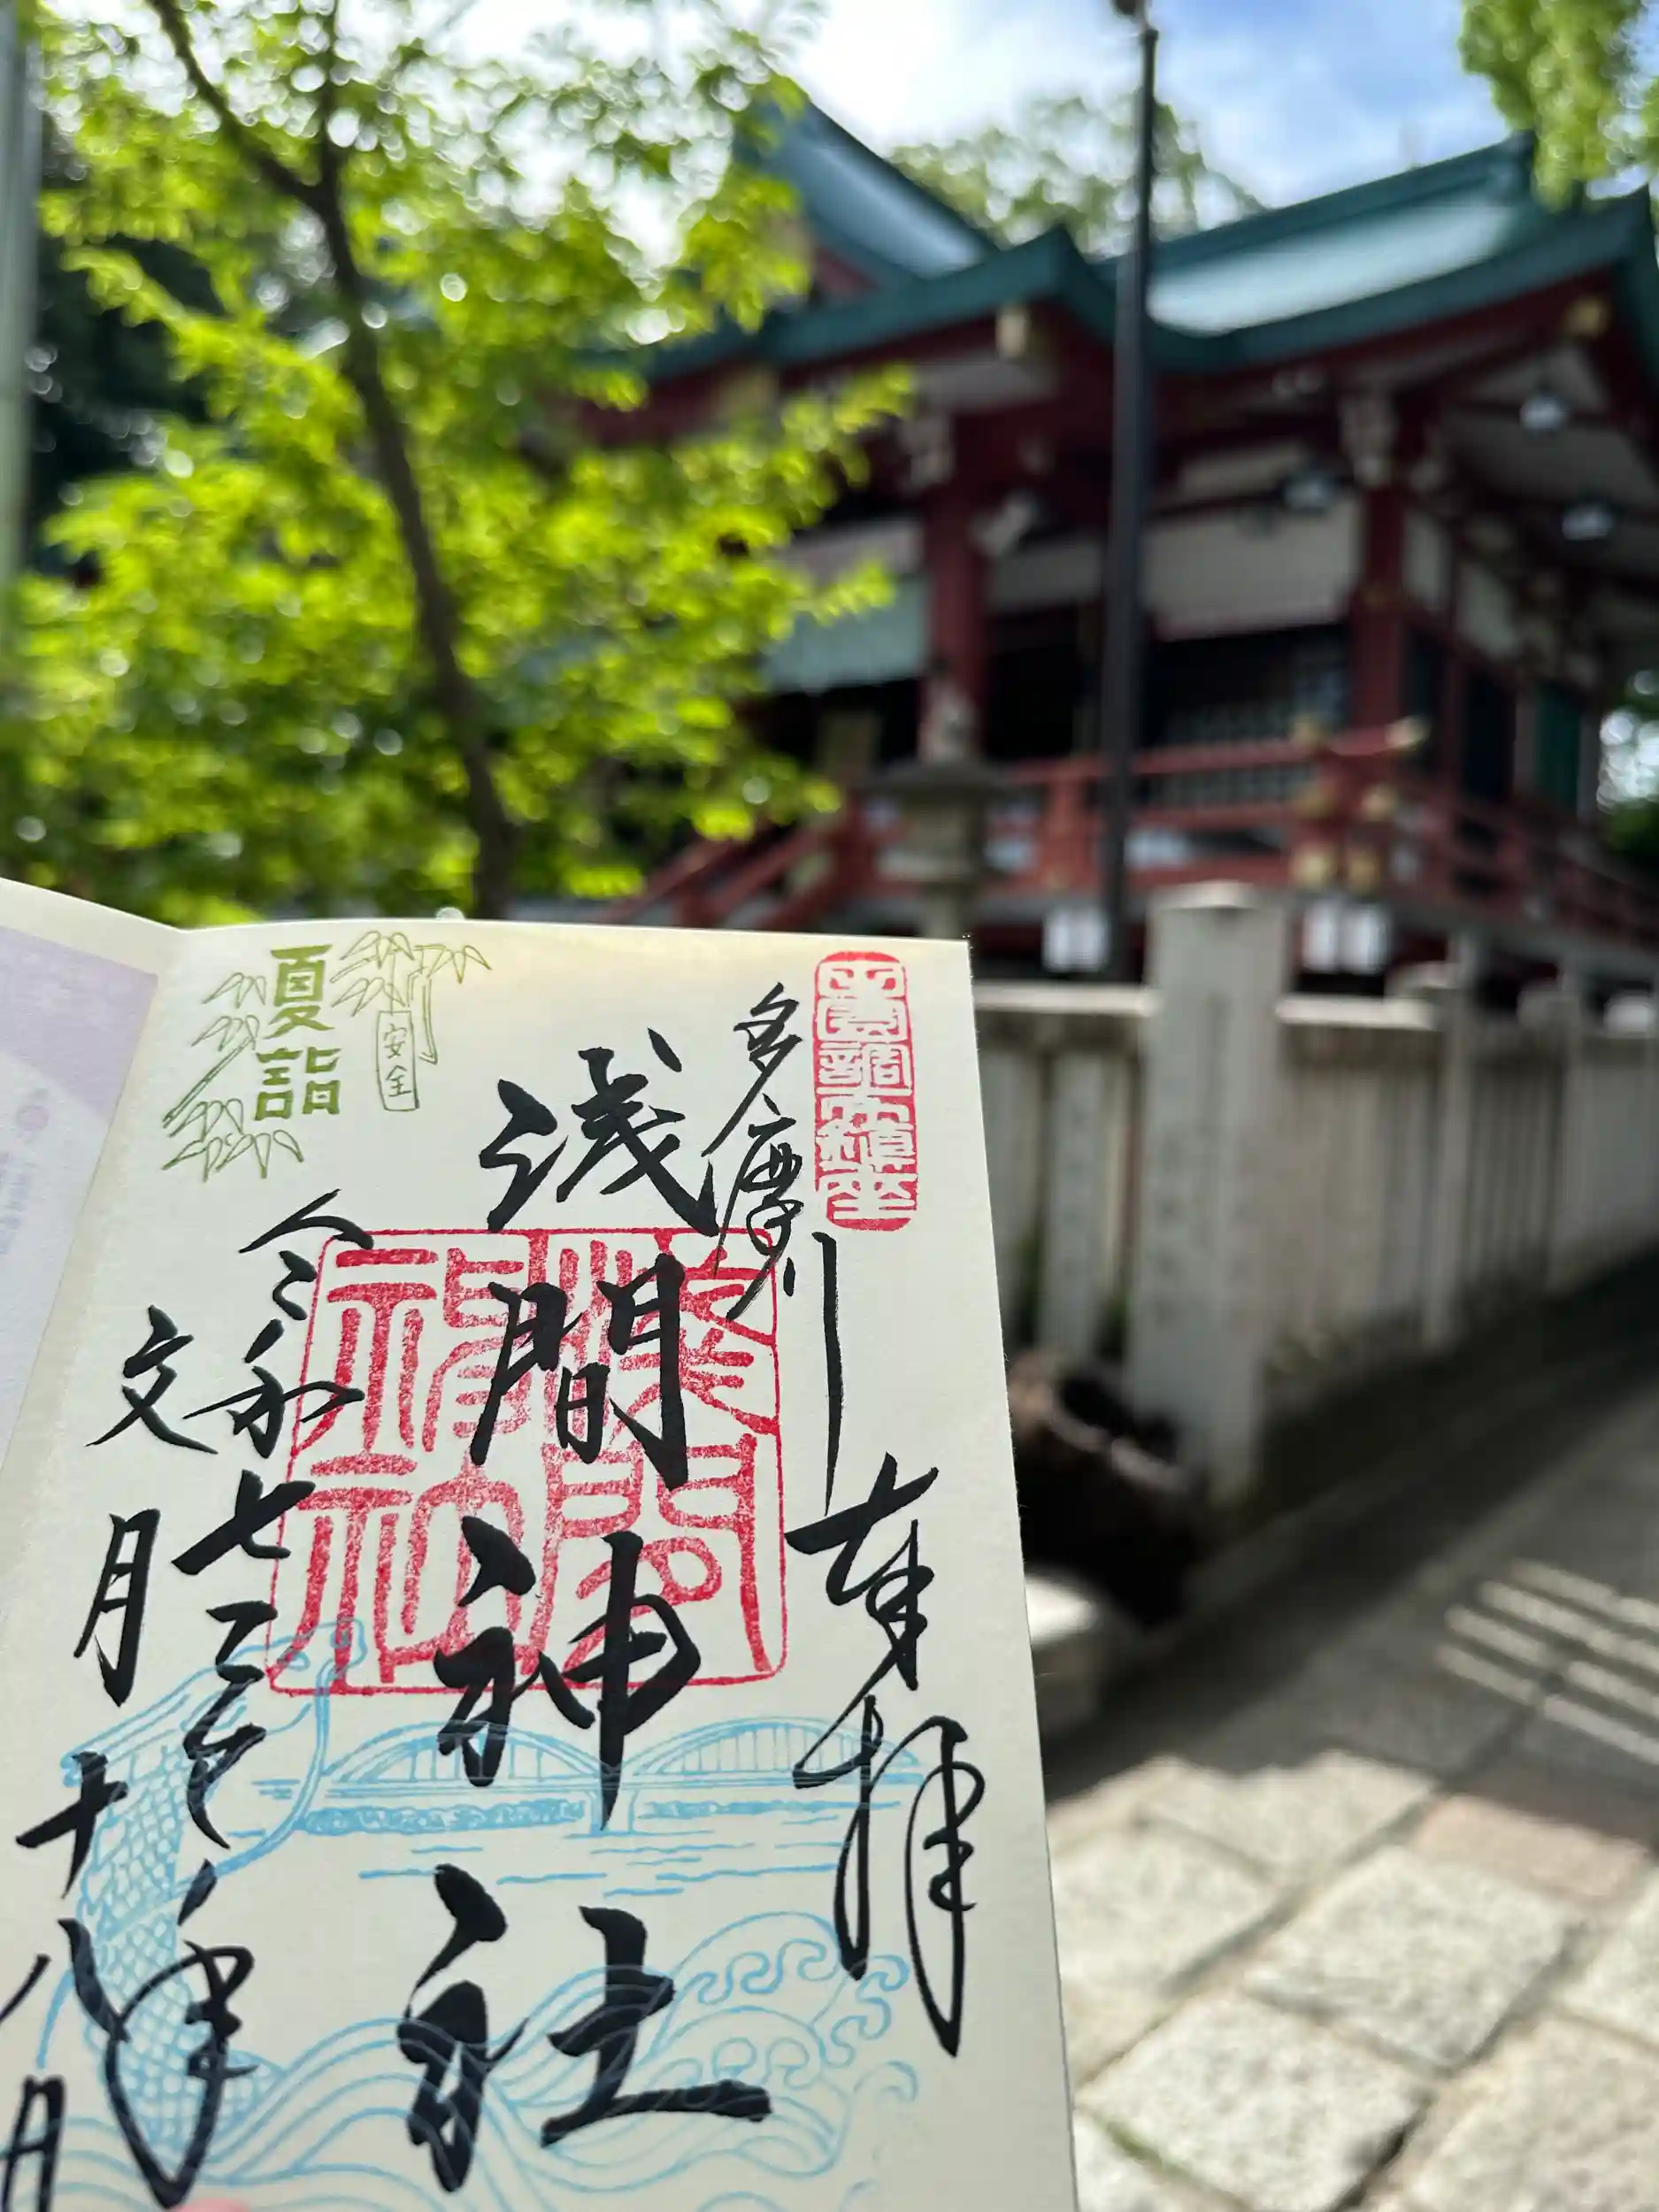 奉拝
多摩川
浅間神社
令和七乙巳年
文月十八日
夏詣
安全